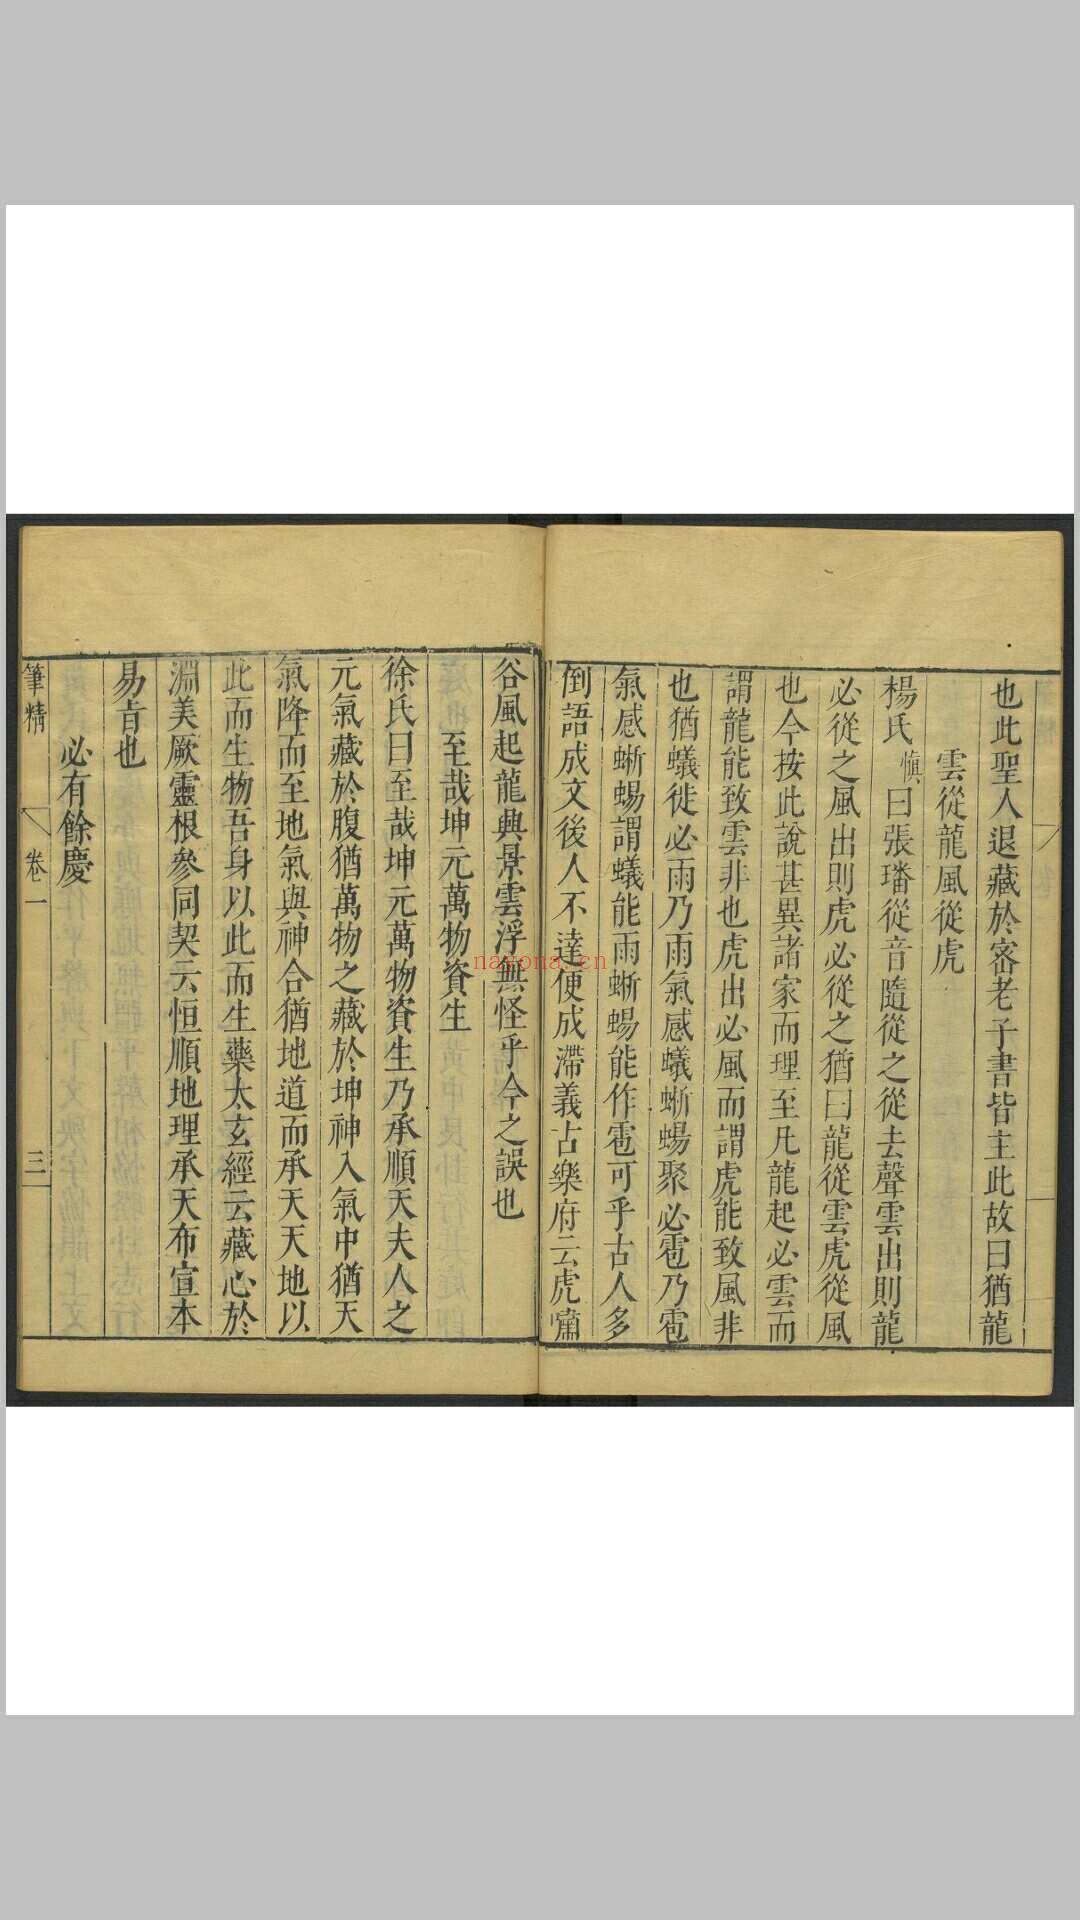 也此聖人退藏於密老子書皆主此故曰猶龍
雲從龍風從虎
楊氏慎曰張璠從音隨從之從去聲雲出則龍
必從之風出則虎必從之猶曰龍從雲虎從風
也今按此說甚異諸家而理至凡龍起必雲而
謂龍能致雲非也虎出必風而謂虎能致風非
也猶蟻徙必雨乃雨氣感蟻蜥蜴聚必雹乃雹
氣感蜥蜴謂蟻能雨蜥蜴能作雹可乎古人多
倒語成文後人不達便成滯義古樂府云虎嘯
谷風起龍興景雲浮無怪乎今之誤也
至哉坤元萬物資生
徐氏曰至哉坤元萬物資生乃承順天夫人之
元氣藏於腹猶萬物之藏於坤神入氣中猶天
氣降而至地氣與神合猶地道而承天天地以
此而生物吾身以此而生藥太玄經云藏心於
淵美厥靈根參同契云恒順地理承天布宣本
易旨也
必有餘慶
筆精
卷一
三
nayona.cn